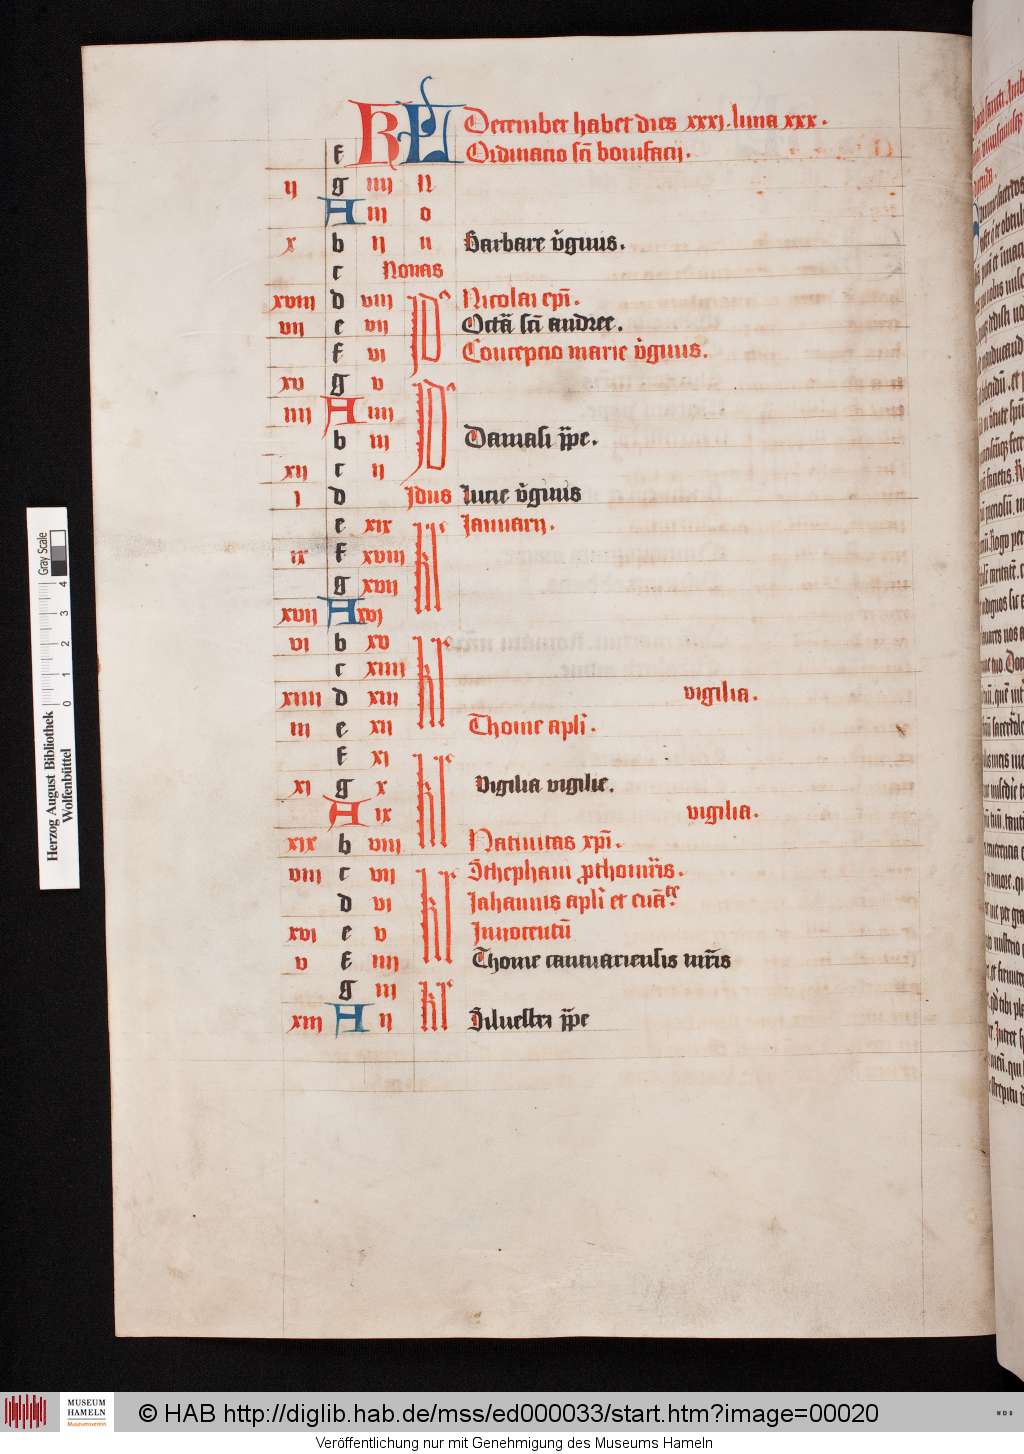 KL December habet dies xxxi. luna xxx.
f Ordinatio sc̄i bonifacij.
ij g iiij N
A iij o
x b ij n Barbare v̄ginis.
c Nonas
xviij d viij Jd⁹ Nicolai ep̄i.
vij e vij Octā sc̄i andree.
f vi Conceptio marie v̄ginis.
xv g v Jd⁹
iiij A iiij
b iij Damasi p̄pe.
xij c ij
i d Jdus Lucie v̄ginis
e xix kl Januarij.
ix f xviij
g xvij
xvij A xvj
vi b xv kl
c xiiij
xiiij d xiij vigilia.
iij e xij Thome apl̄i.
f xi kl
xi g x Vigilia vigilie.
A ix vigilia.
xix b viij Natiuitas xp̄i.
viij c vij kl Sthephani prthomr̄is.
d vi Johannis apl̄i et euā.te
xvi e v Innocentū
v f iiij Thome cantuariensis mr̄is
g iij kl
xiij A ij Siluestri p̄pe
Herzog August Bibliothek
Wolfenbüttel
0 1 2 3 4
Gray Scale
MUSEUM
HAMELN
Museumsverein
© HAB http://diglib.hab.de/mss/ed000033/start.htm?image=00020
Veröffentlichung nur mit Genehmigung des Museums Hameln